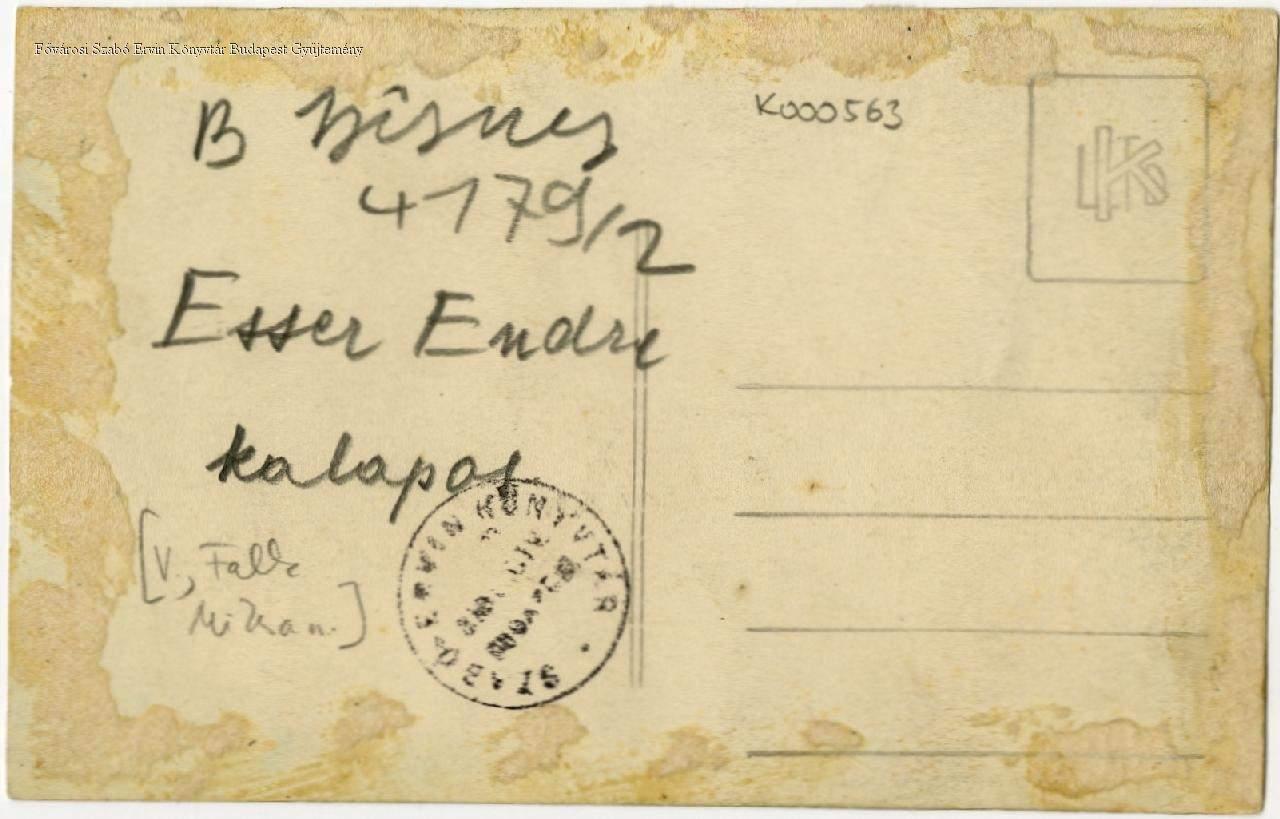 Fővárosi Szabó Ervin Könyvtár Budapest Gyűjtemény
B
K000563
4179/2
Esser Endre
kalapos
[V., Falk
Miksa u.]
SZABÓ ERVIN KÖNYVTÁR